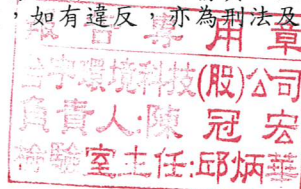 ，如有違反，亦為刑法及
報告專用章
台宇環境科技(股)公司
負責人:陳冠宏
檢驗室主任:邱炳華